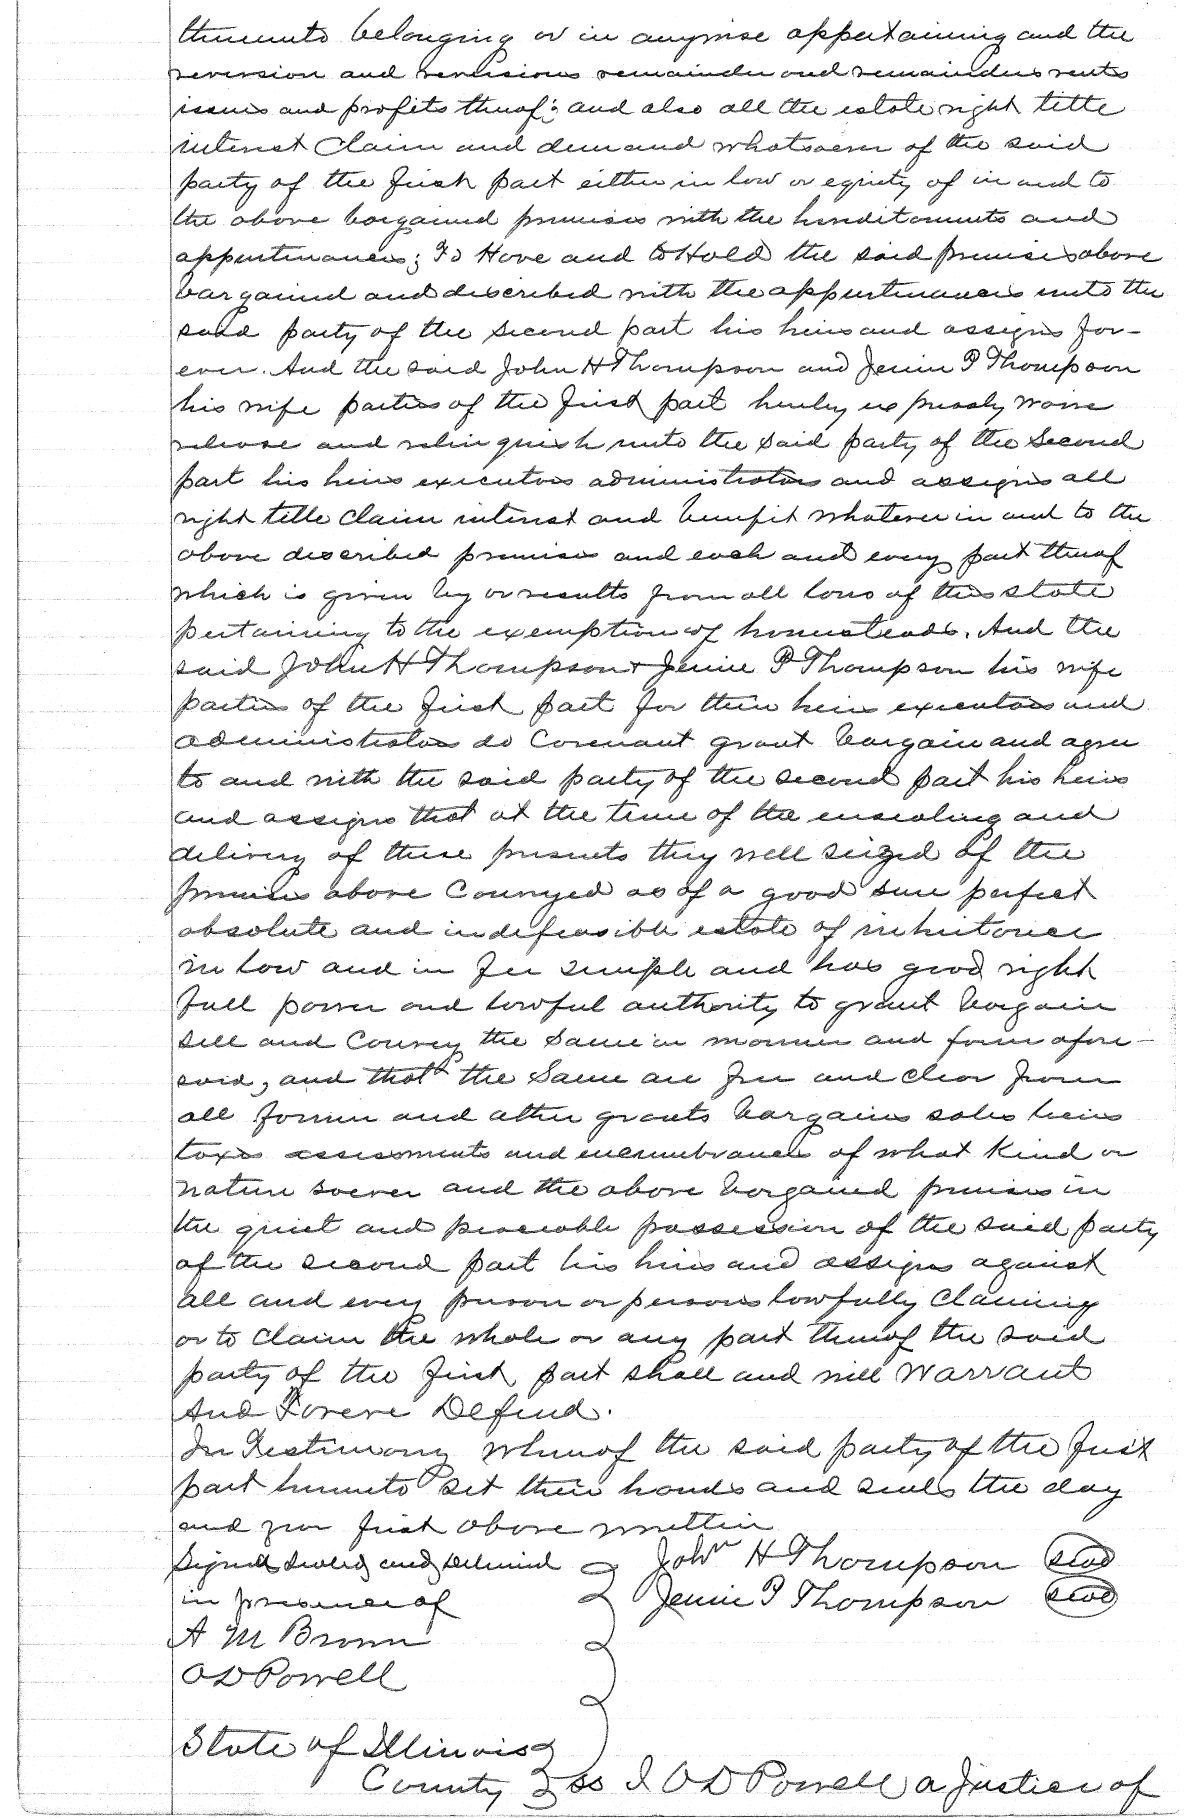 thereunto belonging or in anywise appertaining and the
reversion and reversions remainder and remainders rents
issues and profits thereof; and also all the estate right title
interest Claim and demand whatsoever of the said
party of the first part either in law or equity of in and to
the above bargained premises with the hereditaments and
appurtenances; To Have and to Hold the said premises above
bargained and described with the appurtenances unto the
said party of the second part his heirs and assigns for-
ever. And the said John H Thompson and Jennie P Thompson
his wife parties of the first part hereby expressly waive
release and relinquish unto the said party of the Second
part his heirs executors administrators and assigns all
right title claim interest and benefit whatever in and to the
above described premises and each and every part thereof
which is given by or results from all laws of this state
pertaining to the exemption of homesteads. And the
said John H Thompson + Jennie P Thompson his wife
parties of the first part for their heirs executors and
administrators do Covenant grant bargain and agree
to and with the said party of the second part his heirs
and assigns that at the time of the ensealing and
delivery of these presents they well seized of the
premises above Conveyed as of a good sure perfect
absolute and indefeasible estate of inheritance
in law and in fee simple and has good right
full power and lawful authority to grant bargain
sell and Convey the Same in manner and form afore-
said, and that the Same are free and clear from
all former and other grants bargains sales liens
taxes assessments and encumbrances of what Kind or
nature soever and the above bargained premises in
the quiet and peaceable possession of the said party
of the second part his heirs and assigns against
all and every person or persons lawfully Claiming
or to Claim the whole or any part thereof the said
party of the first part shall and will Warrant
And Forever Defend.
In Testimony whereof the said party of the first
part hereunto set their hands and seals the day
and year first above written
Signed Sealed and Delivered
in presence of
A M Brown
O D Powell
John H Thompson seal
Jennie P Thompson seal
State of Illinois
County ss I O D Powell a Justice of